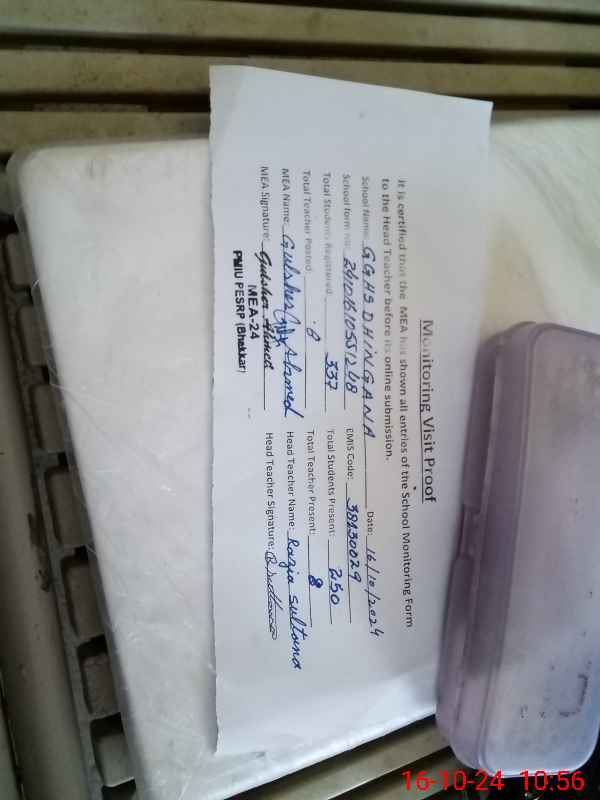 Monitoring Visit Proof
It is certified that the MEA has shown all entries of the School Monitoring Form
to the Head Teacher before its online submission.
School Name: GGHS DHINGANA Date: 16/10/2024
School form no: EMIS Code: 38130029
Total Students Registered: 337 Total Students Present: 250
Total Teacher Posted: 8 Total Teacher Present: 8
MEA Name: Gulsher Ahmed Head Teacher Name: Razia Sultana
MEA Signature: Gulsher Ahmed Head Teacher Signature:
MEA-24
PMIU PESRP (Bhakkar)
16-10-24 10:56